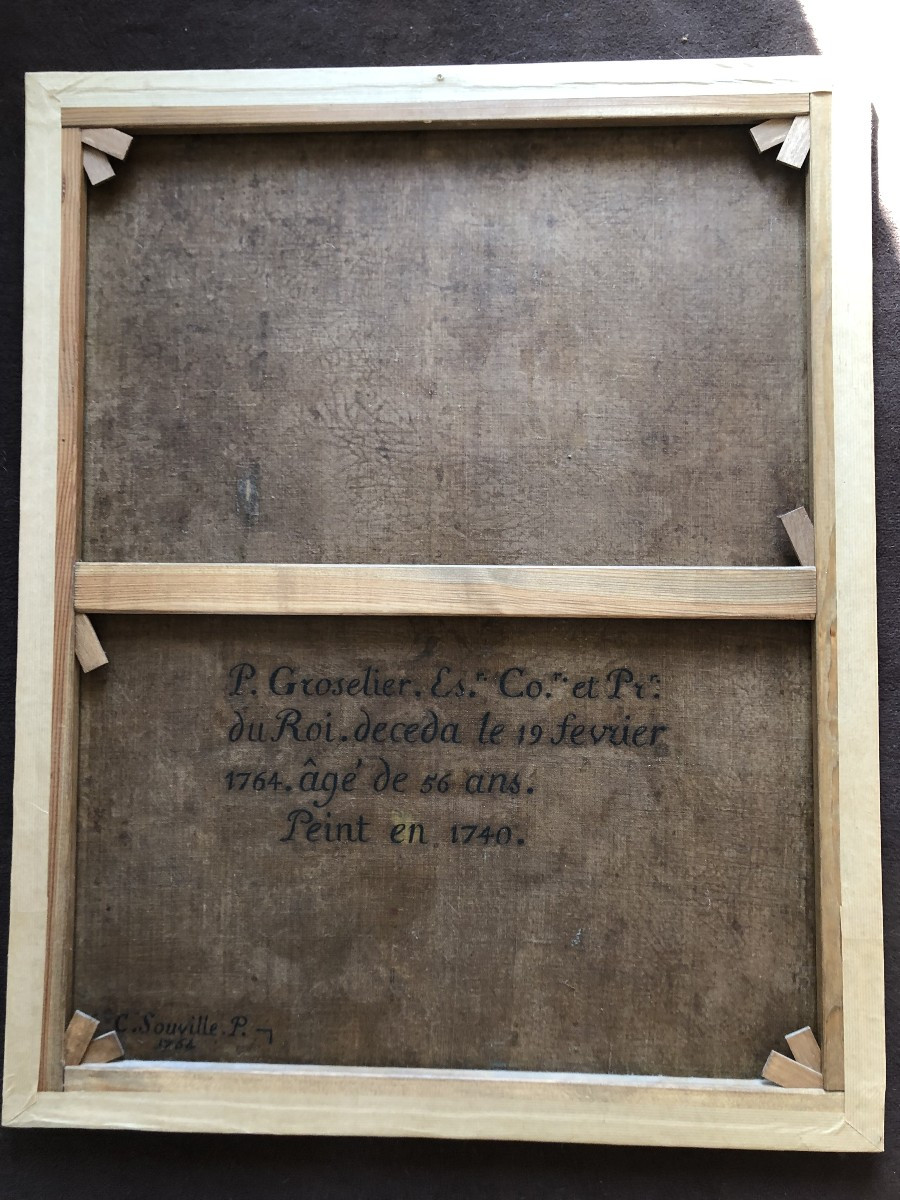 P. Groselier. Es.ⁿ Co.ⁿ et Pr.ⁿ
du Roi. deceda le 19 fevrier
1764. âgé de 56 ans.
Peint en 1740.
C. Souville. P.